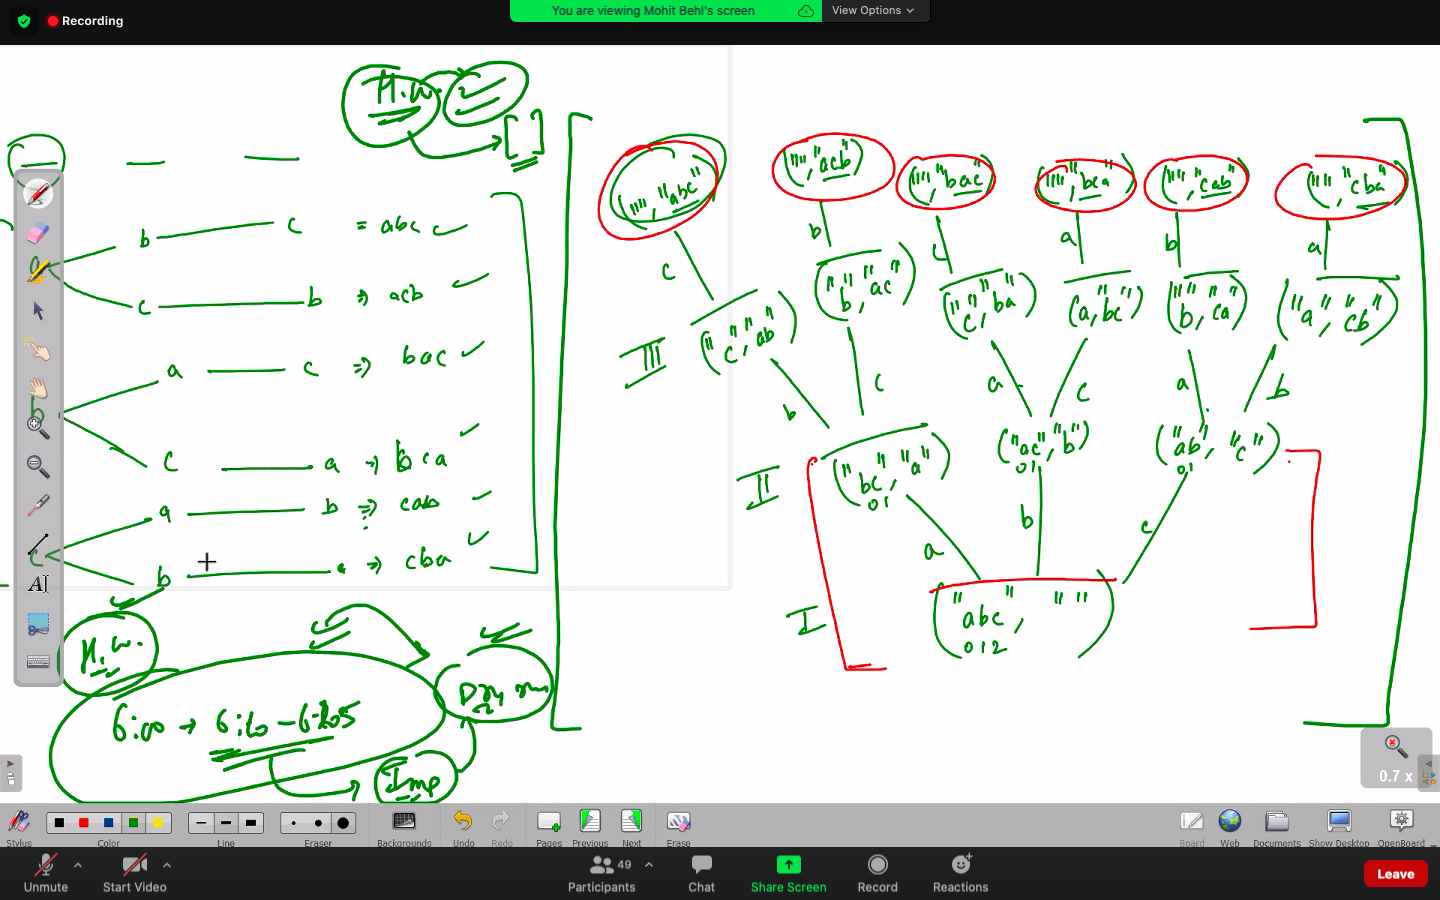 Recording
You are viewing Mohit Behl's screen
View Options
H.W.
b c = abc
c b ⇒ acb
a c ⇒ bac
b
c a → bca
a b ⇒ cab
c
b a → cba
H.W.
6:00 → 6:20 - 6:205
Dry run
Imp
("", "abc") ("", "acb") ("", "bac") ("", "bca") ("", "cab") ("", "cba")
c b c a b a
III ("c", "ab") ("b", "ac") ("c", "ba") (a, bc") ("b", "ca") ("a", "cb")
b c a c a b
II ("bc", "a") ("ac", "b") ("ab", "c")
01 01 01
a b c
I ("abc", "")
012
0.7 x
Stylus Color Line Eraser Backgrounds Undo Redo Pages Previous Next Erase Board Web Documents Show Desktop OpenBoard
Unmute Start Video Participants 49 Chat Share Screen Record Reactions Leave